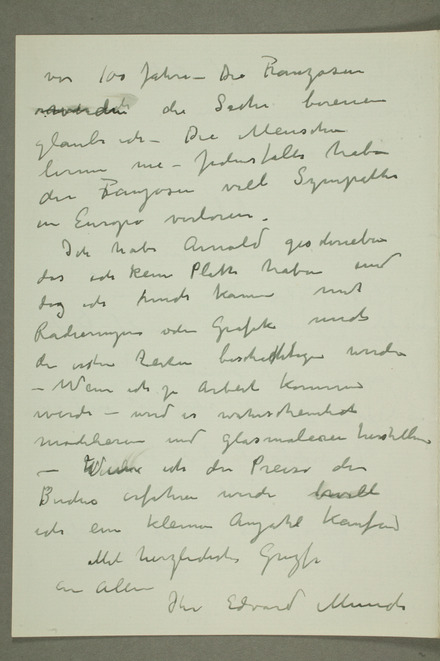 vor 100 Jahre – Die Franzosen
werden die Sache bereuen
glaube ich – Die Menschen
lernen nie – Jedenfalls haben
die Franzosen viel Sympathie
in Europa verloren.
Ich habe Arnold geschrieben
das ich kein Platte habe und
das ich kaum mit
Radierungen oder Grafik mich
die ersten Zeiten beschäftigen werde
– Wenn ich zu Arbeit kommen
werde – wird es wahrscheinlich
modelieren und glasmaleren
– Wenn ich die Preise der
Buches erfahren werde
ich ein kleinen Anzahl kaufen
Mit herzlichste Grüsse
an Allen
Ihr Edvard Munch